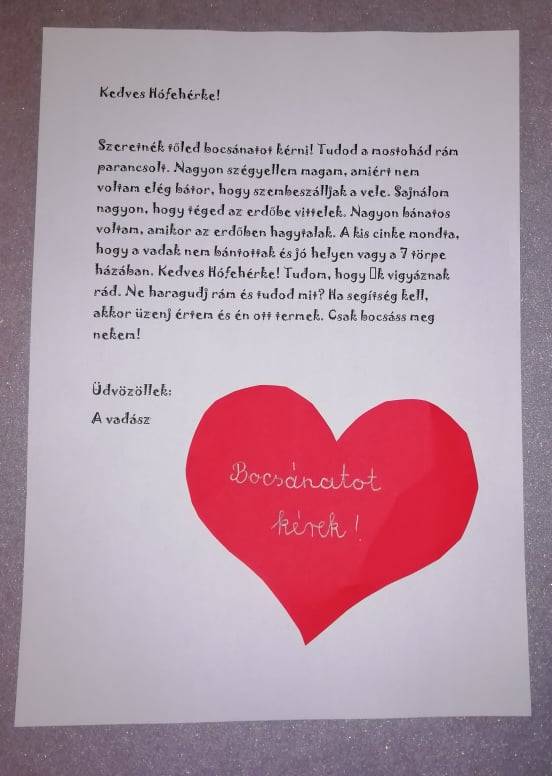 Kedves Hófehérke!
Szeretnék tőled bocsánatot kérni! Tudod a mostohád rám
parancsolt. Nagyon szégyellem magam, amiért nem
voltam elég bátor, hogy szembeszálljak a vele. Sajnálom
nagyon, hogy téged az erdőbe vittelek. Nagyon bánatos
voltam, amikor az erdőben hagytalak. A kis cinke mondta,
hogy a vadak nem bántottak és jó helyen vagy a 7 törpe
házában. Kedves Hófehérke! Tudom, hogy □k vigyáznak
rád. Ne haragudj rám és tudod mit? Ha segítség kell,
akkor üzenj értem és én ott termek. Csak bocsáss meg
nekem!
Üdvözöllek:
A vadász
Bocsánatot
kérek!